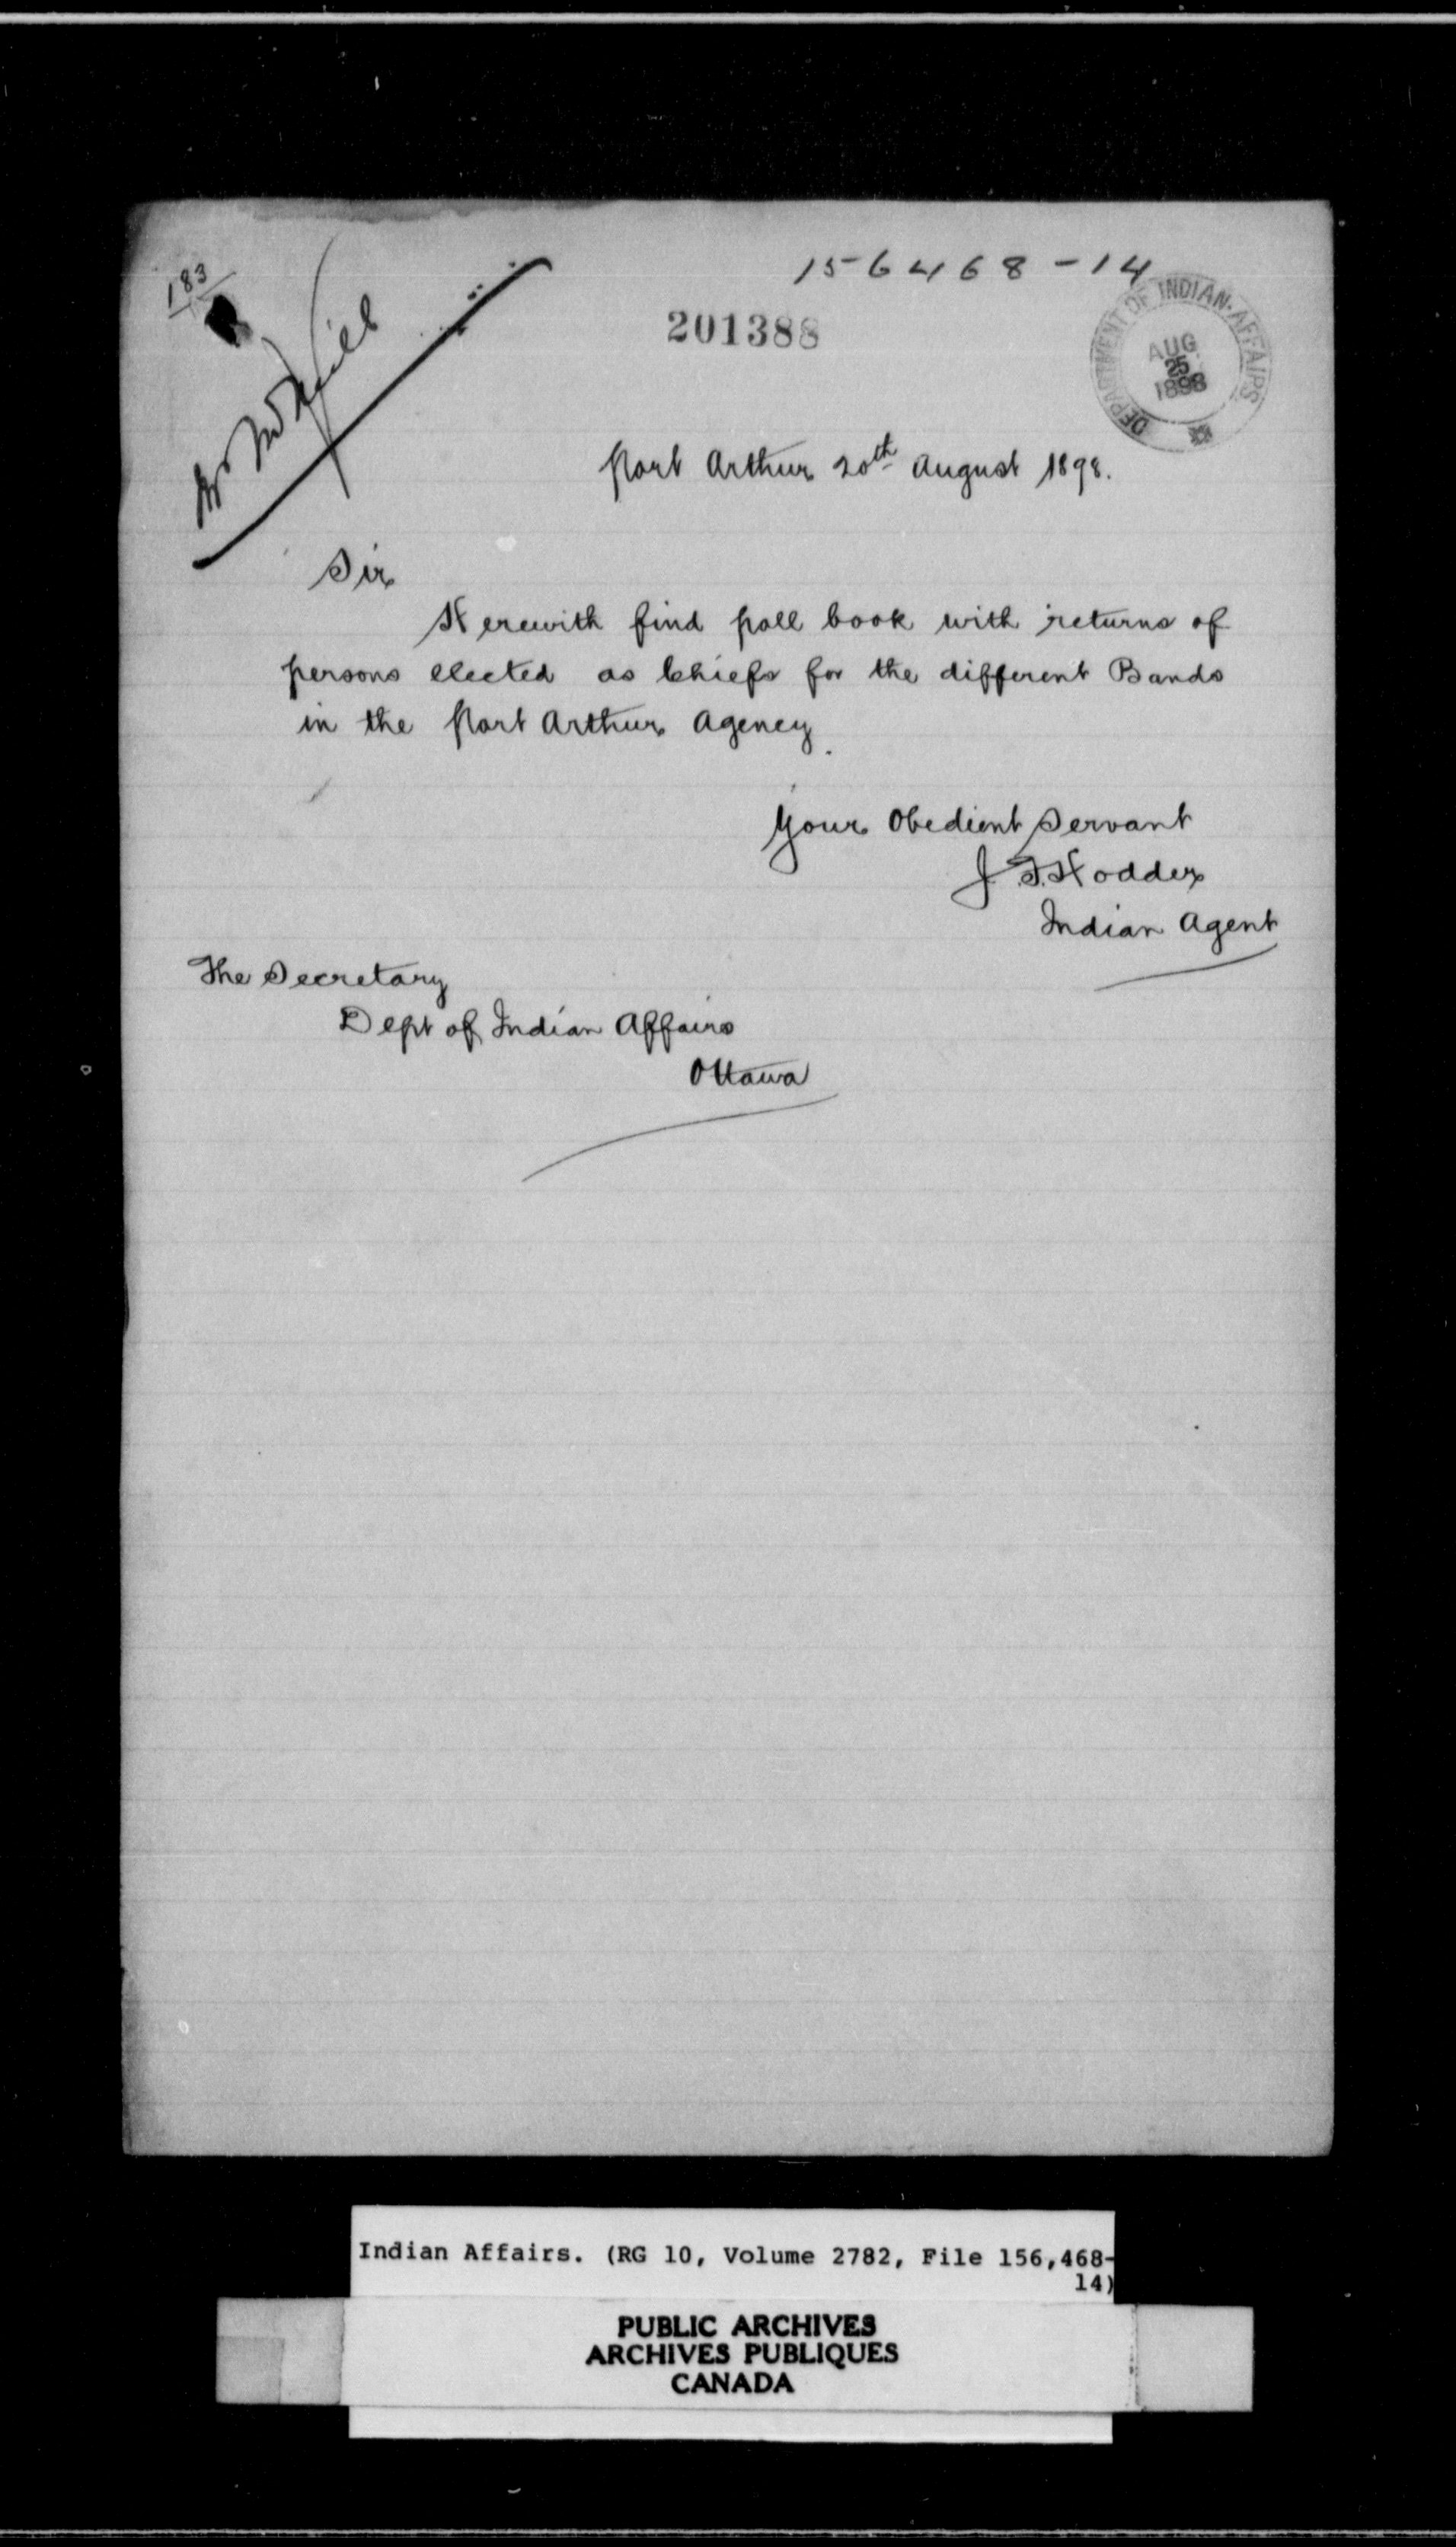 183
156468-14
201388
DEPARTMENT OF INDIAN AFFAIRS
AUG
25
1898
Port Arthur 20th August 1898.
Sir
Herewith find poll book with returns of
persons elected as Chiefs for the different Bands
in the Port Arthur Agency.
Your Obedient Servant
J. F. Hodder
Indian Agent
The Secretary
Dept of Indian Affairs
Ottawa
Indian Affairs. (RG 10, Volume 2782, File 156,468-
14)
PUBLIC ARCHIVES
ARCHIVES PUBLIQUES
CANADA